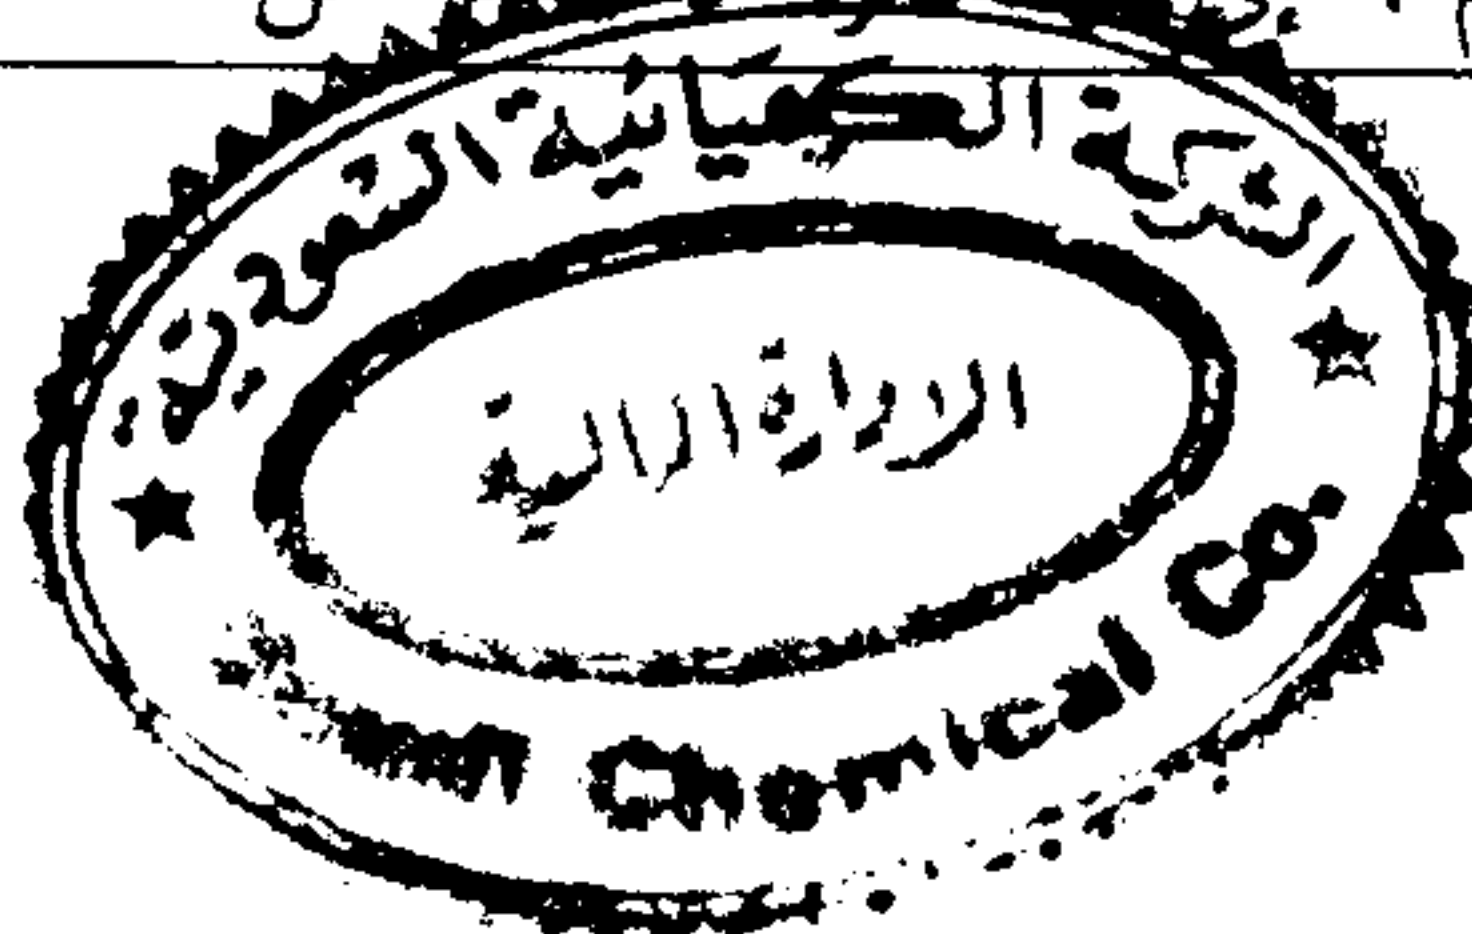 الشركة الكيميائية السعودية
الادارة المالية
Chemical Co.